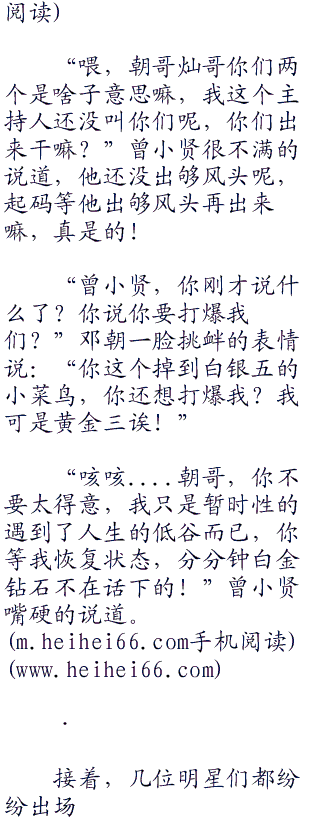 阅读)
“喂，朝哥灿哥你们两
个是啥子意思嘛，我这个主
持人还没叫你们呢，你们出
来干嘛？”曾小贤很不满的
说道，他还没出够风头呢，
起码等他出够风头再出来
嘛，真是的！
“曾小贤，你刚才说什
么了？你说你要打爆我
们？”邓朝一脸挑衅的表情
说：“你这个掉到白银五的
小菜鸟，你还想打爆我？我
可是黄金三诶！”
“咳咳....朝哥，你不
要太得意，我只是暂时性的
遇到了人生的低谷而已，你
等我恢复状态，分分钟白金
钻石不在话下的！”曾小贤
嘴硬的说道。
(m.heihei66.com手机阅读)
(www.heihei66.com)
.
接着，几位明星们都纷
纷出场